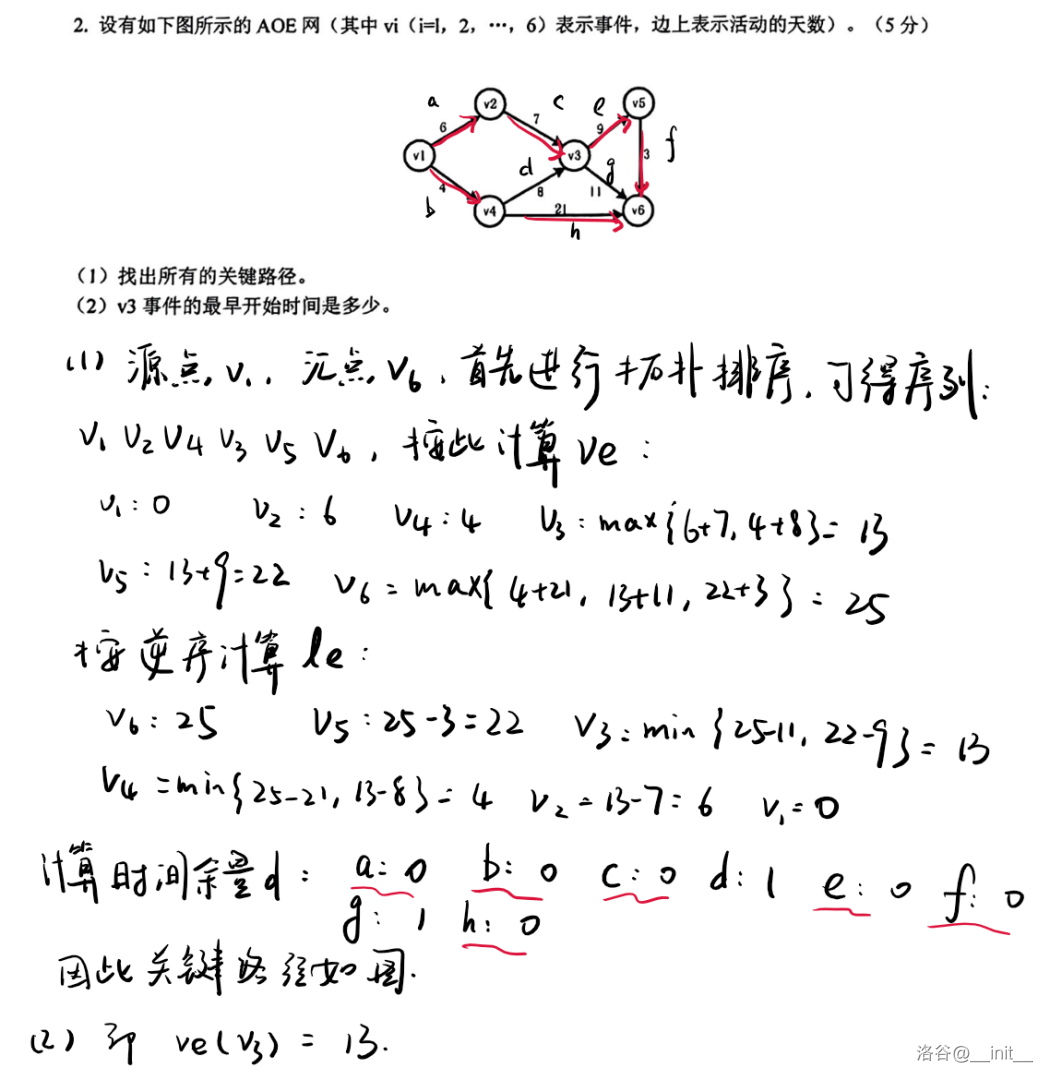 2. 设有如下图所示的 AOE 网（其中 vi（i=l，2，…，6）表示事件，边上表示活动的天数）。（5 分）
a v2 c e v5
6 7 9
v1 d v3 g 3 f
4 8 11
b v4 21 v6
h
（1）找出所有的关键路径。
（2）v3 事件的最早开始时间是多少。
(1) 源点 V₁, 汇点 V₆, 首先进行拓扑排序, 可得序列:
V₁ V₂ V₄ V₃ V₅ V₆, 按此计算 ve:
V₁: 0 V₂: 6 V₄: 4 V₃: max{6+7, 4+8} = 13
V₅: 13+9=22 V₆ = max{4+21, 13+11, 22+3} = 25
按逆序计算 le:
V₆: 25 V₅: 25-3=22 V₃: min{25-11, 22-9} = 13
V₄ = min{25-21, 13-8} = 4 V₂ = 13-7 = 6 V₁ = 0
计算时间余量 d: a: 0 b: 0 c: 0 d: 1 e: 0 f: 0
g: 1 h: 0
因此关键路径如图.
(2) 即 ve(V₃) = 13.
洛谷@__init__